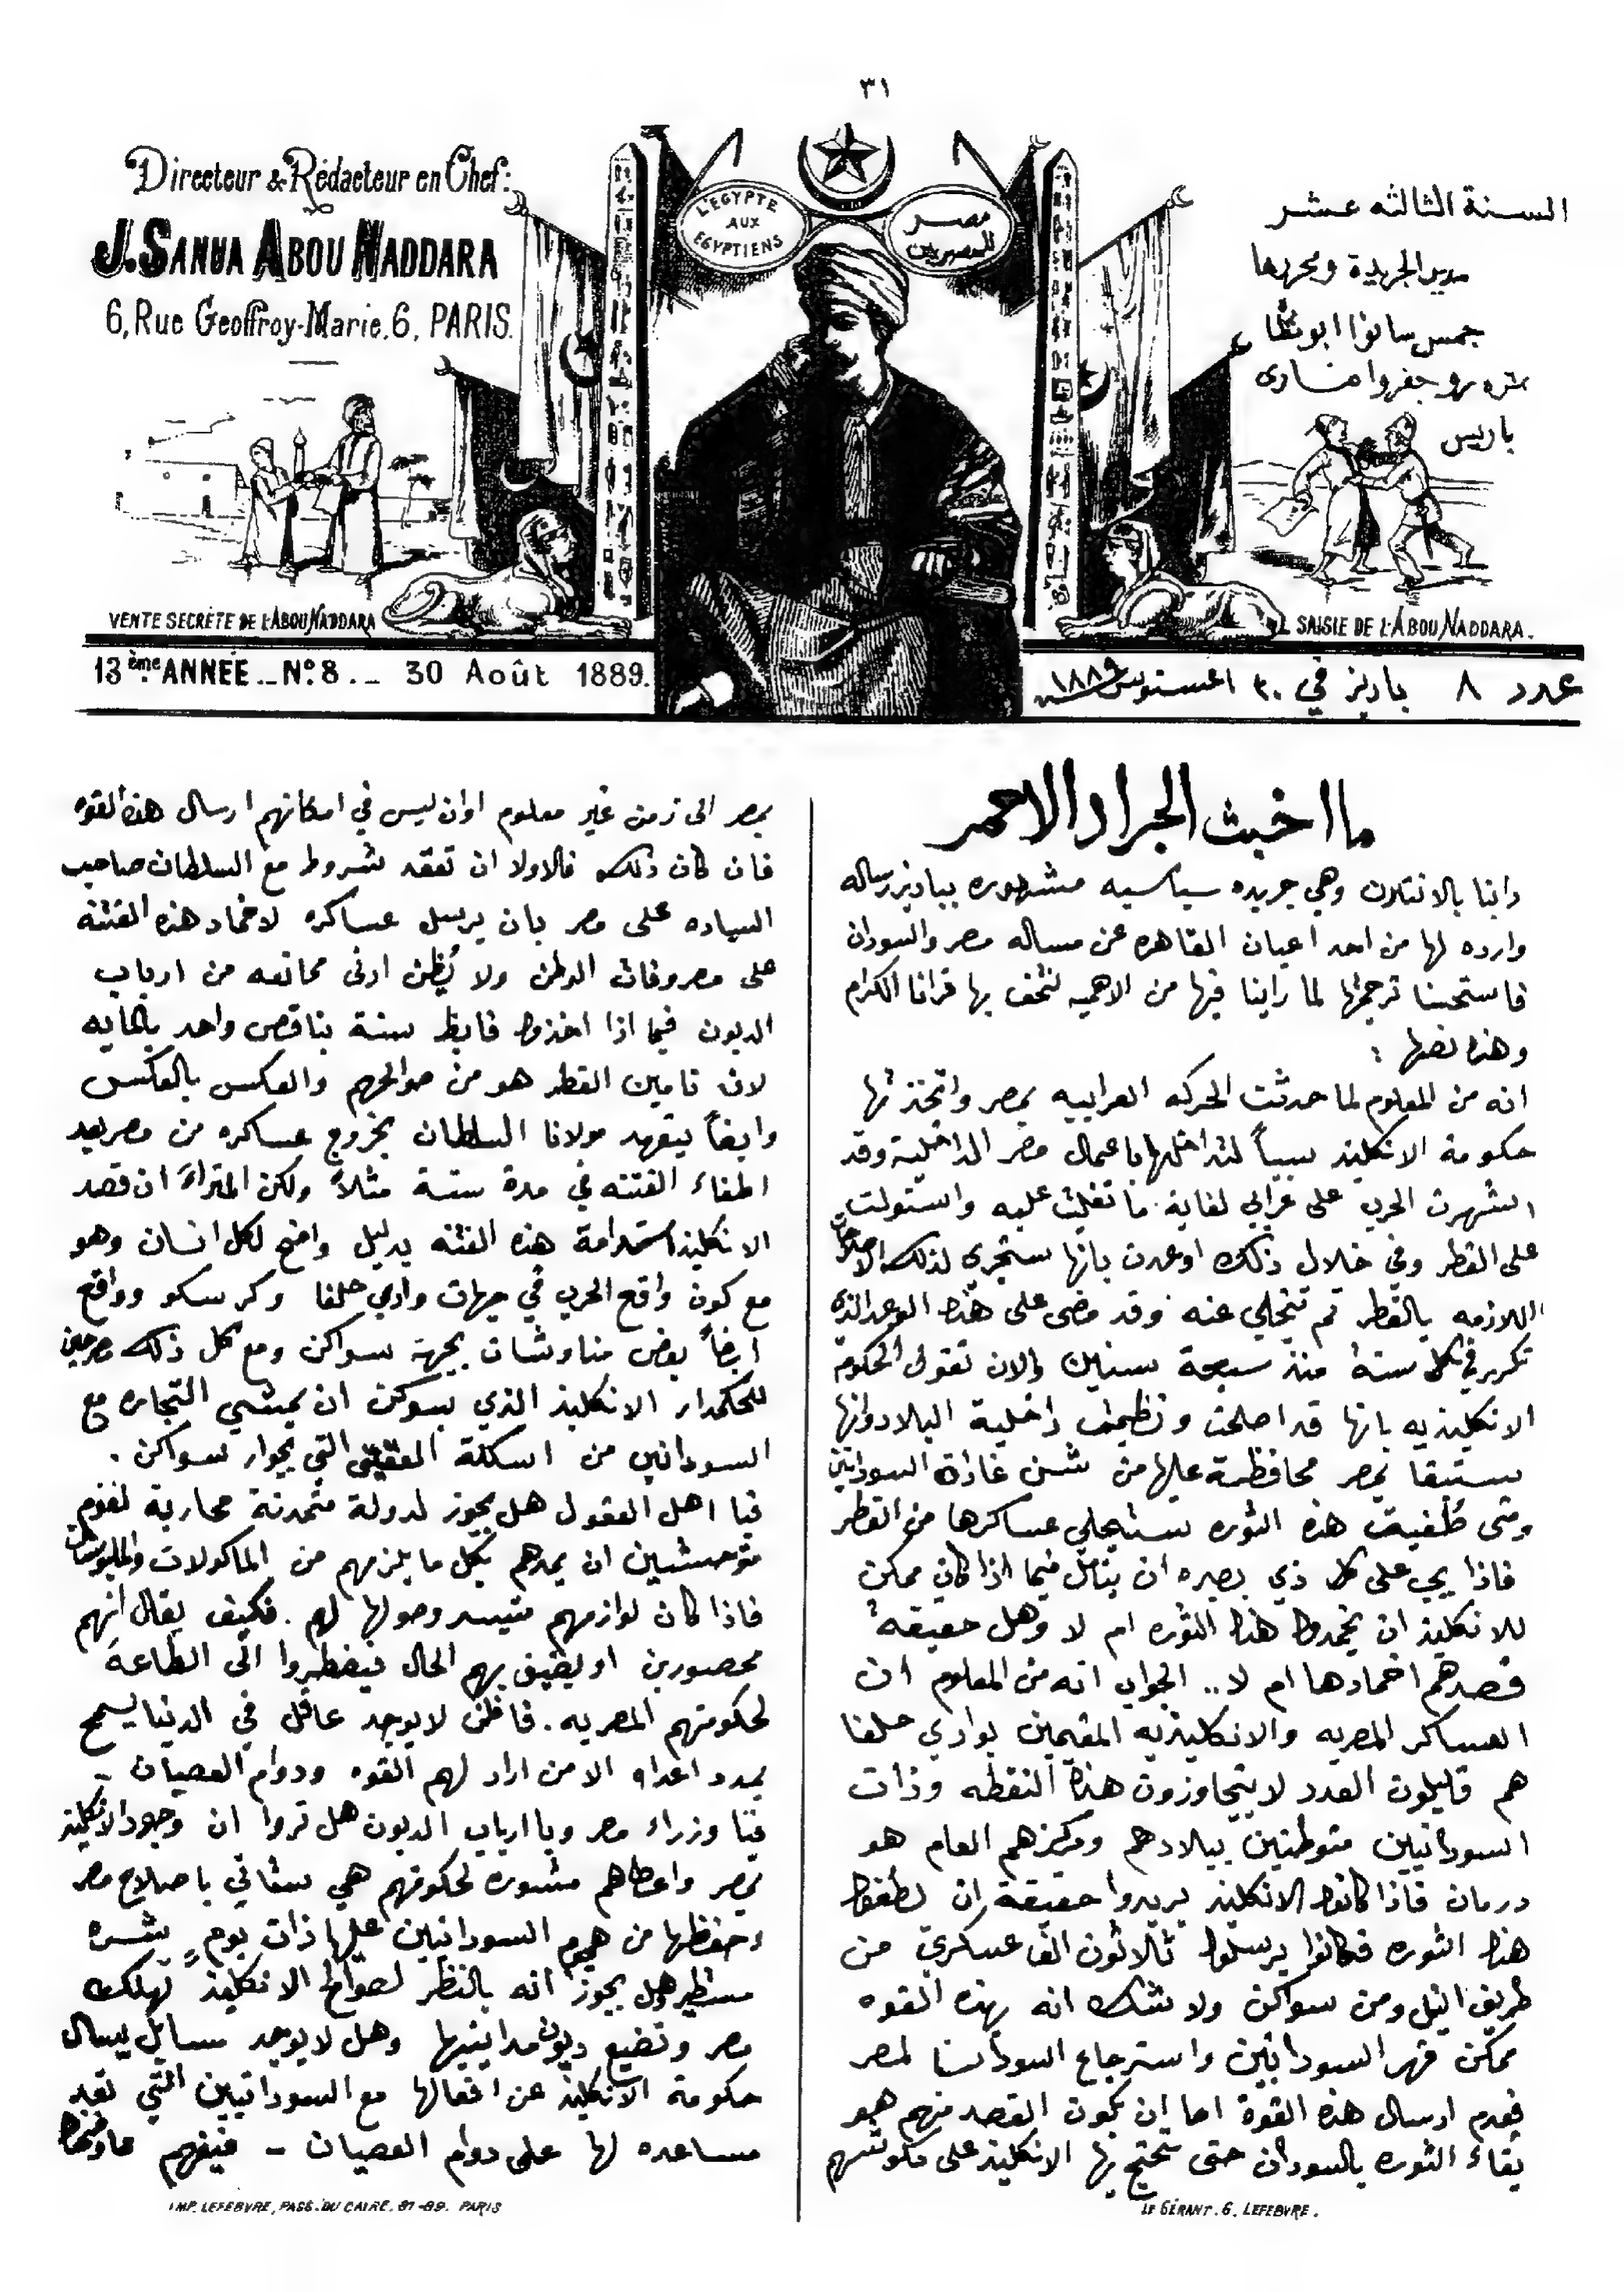 ٣١
Directeur & Rédacteur en Chef:
J. SANUA ABOU NADDARA
6, Rue Geoffroy-Marie, 6, PARIS.
L'EGYPTE
AUX
EGYPTIENS
مصر
للمصريين
السنة الثالثه عشر
مدير الجريدة ومحررها
جمس سانوا ابو نظارا
نمره ٦ رو جفروا ماري
باريس
VENTE SECRÈTE DE L'ABOU NADDARA
SAISIE DE L'ABOU NADDARA.
13ème ANNÉE _ No. 8. _ 30 Août 1889.
عدد ٨ باريز في ٣٠ اغستوس سنة ١٨٨٩
ما اخبث الجراد الاحمر
راينا بالانتلان وهي جريده سياسيه مشهوره بباريز رساله
وارده لها من احد اعيان القاهره عن مساله مصر والسودان
فاستحسنا ترجمتها لما راينا فيها من الاهميه لنتحف بها قرانا الكرام
وهذه نصها :
انه من المعلوم لما حدثت الحركه العرابيه بمصر واتخذتها
حكومة الانكليز سبباً لتداخلها باعمال مصر الداخلية وقد
اشهرت الحرب على عرابي لغاية ما تغلبت عليه واستولت
على القطر وفي خلال ذلك اوعدت بانها ستجري لذلك الاصلاحات
اللازمه بالقطر ثم تنجلي عنه وقد مضى على هذا الوعد الذي
تكرر في كل سنة منذ سبعة سنين والان تقول الحكومه
الانكليزيه بانها قد اصلحت ونظمت داخلية البلاد وانها
ستبقا بمصر محافظة عليها من شن غارات السودانيين
ومتى طُفيت هذه الثوره ستجلي عساكرها من القطر
فاذا يجب على كل ذي بصيره ان يتامل فيما اذا كان ممكن
للانكليز ان يخمدوا هذه الثوره ام لا وهل حقيقة
قصدهم اخمادها ام لا .. الجواب انه من المعلوم ان
العساكر المصريه والانكليزيه المقيمين بوادي حلفا
هم قليلون العدد لا يتجاوزون هذه النقطه وذات
السودانيين متوطنين ببلادهم ومركزهم العام هو
درمان فاذا كانوا الانكليز يريدوا حقيقة ان يطفوا
هذه الثوره فكانوا يرسلوا ثلاثون الف عسكري من
طريق النيل ومن سواكن ولا شك انه بهذه القوه
ممكن قهر السودانيين واسترجاع السودان لمصر
فعدم ارسال هذه القوة اما ان يكون القصد منهم هو
بقاء الثوره بالسودان حتى تحتج بها الانكليز على مكوثهم
بمصر الى زمن غير معلوم او ان ليس في امكانهم ارسال هذه القوه
فان كان ذلك فالاولا ان تعقد شروط مع السلطان صاحب
السياده على مصر بان يرسل عساكره لاخماد هذه الفتنه
على مصروفات الوطن ولا يُظن ادنى ممانعه من ارباب
الديون فيما اذا اخذوا فايظ سنة بناقص واحد بالمايه
لان تامين القطر هو من صوالحهم والعكس بالعكس
وايضاً يتعهد مولانا السلطان بخروج عساكره من مصر بعد
اطفاء الفتنه في مدة ستة مثلاً ولكن المتراء ان قصد
الانكليز استدامة هذه الفتنه بدليل واضح لكل انسان وهو
مع كون واقع الحرب في جهات وادي حلفا وكرسكو وواقع
ايضاً بعض مناوشات بجهة سواكن ومع كل ذلك مرخصين
للحكمدار الانكليز الذي بسوكن ان يمشي التجاره مع
السودانيين من اسكلة التي بجوار سواكن .
فيا اهل العقول هل يجوز لدولة متمدنة محاربة لقوم
متوحشين ان يمدهم بكل ما يلزمهم من الماكولات والملبوسات
فاذا كان لوازمهم متيسر وصولها لهم . فكيف يقال انهم
محصورين او يضيق بهم الحال فيضطروا الى الطاعة
لحكومتهم المصريه . فاظن لا يوجد عاقل في الدنيا يسمح
بمدد اعداه الا من اراد لهم القوه ودوام العصيان -
فيا وزراء مصر ويا ارباب الديون هل تروا ان وجود الانكليز
بمصر واعطاهم مشوره لحكومتهم هي ستاتي باصلاح مصر
وحفظها من هجم السودانيين عليها ذات يوم بشره
مستطير وهل يجوز انه بالنظر لصوالح الانكليز تهلك
مصر وتضيع ديون مداينيها وهل لا يوجد سايل يسال
حكومة الانكليز عن افعالها مع السودانيين التي تعد
مساعده لها على دوام العصيان - فيفهم
IMP. LEFEBVRE, PASS. DU CAIRE, 87-89. PARIS
LE GÉRANT. G. LEFEBVRE.